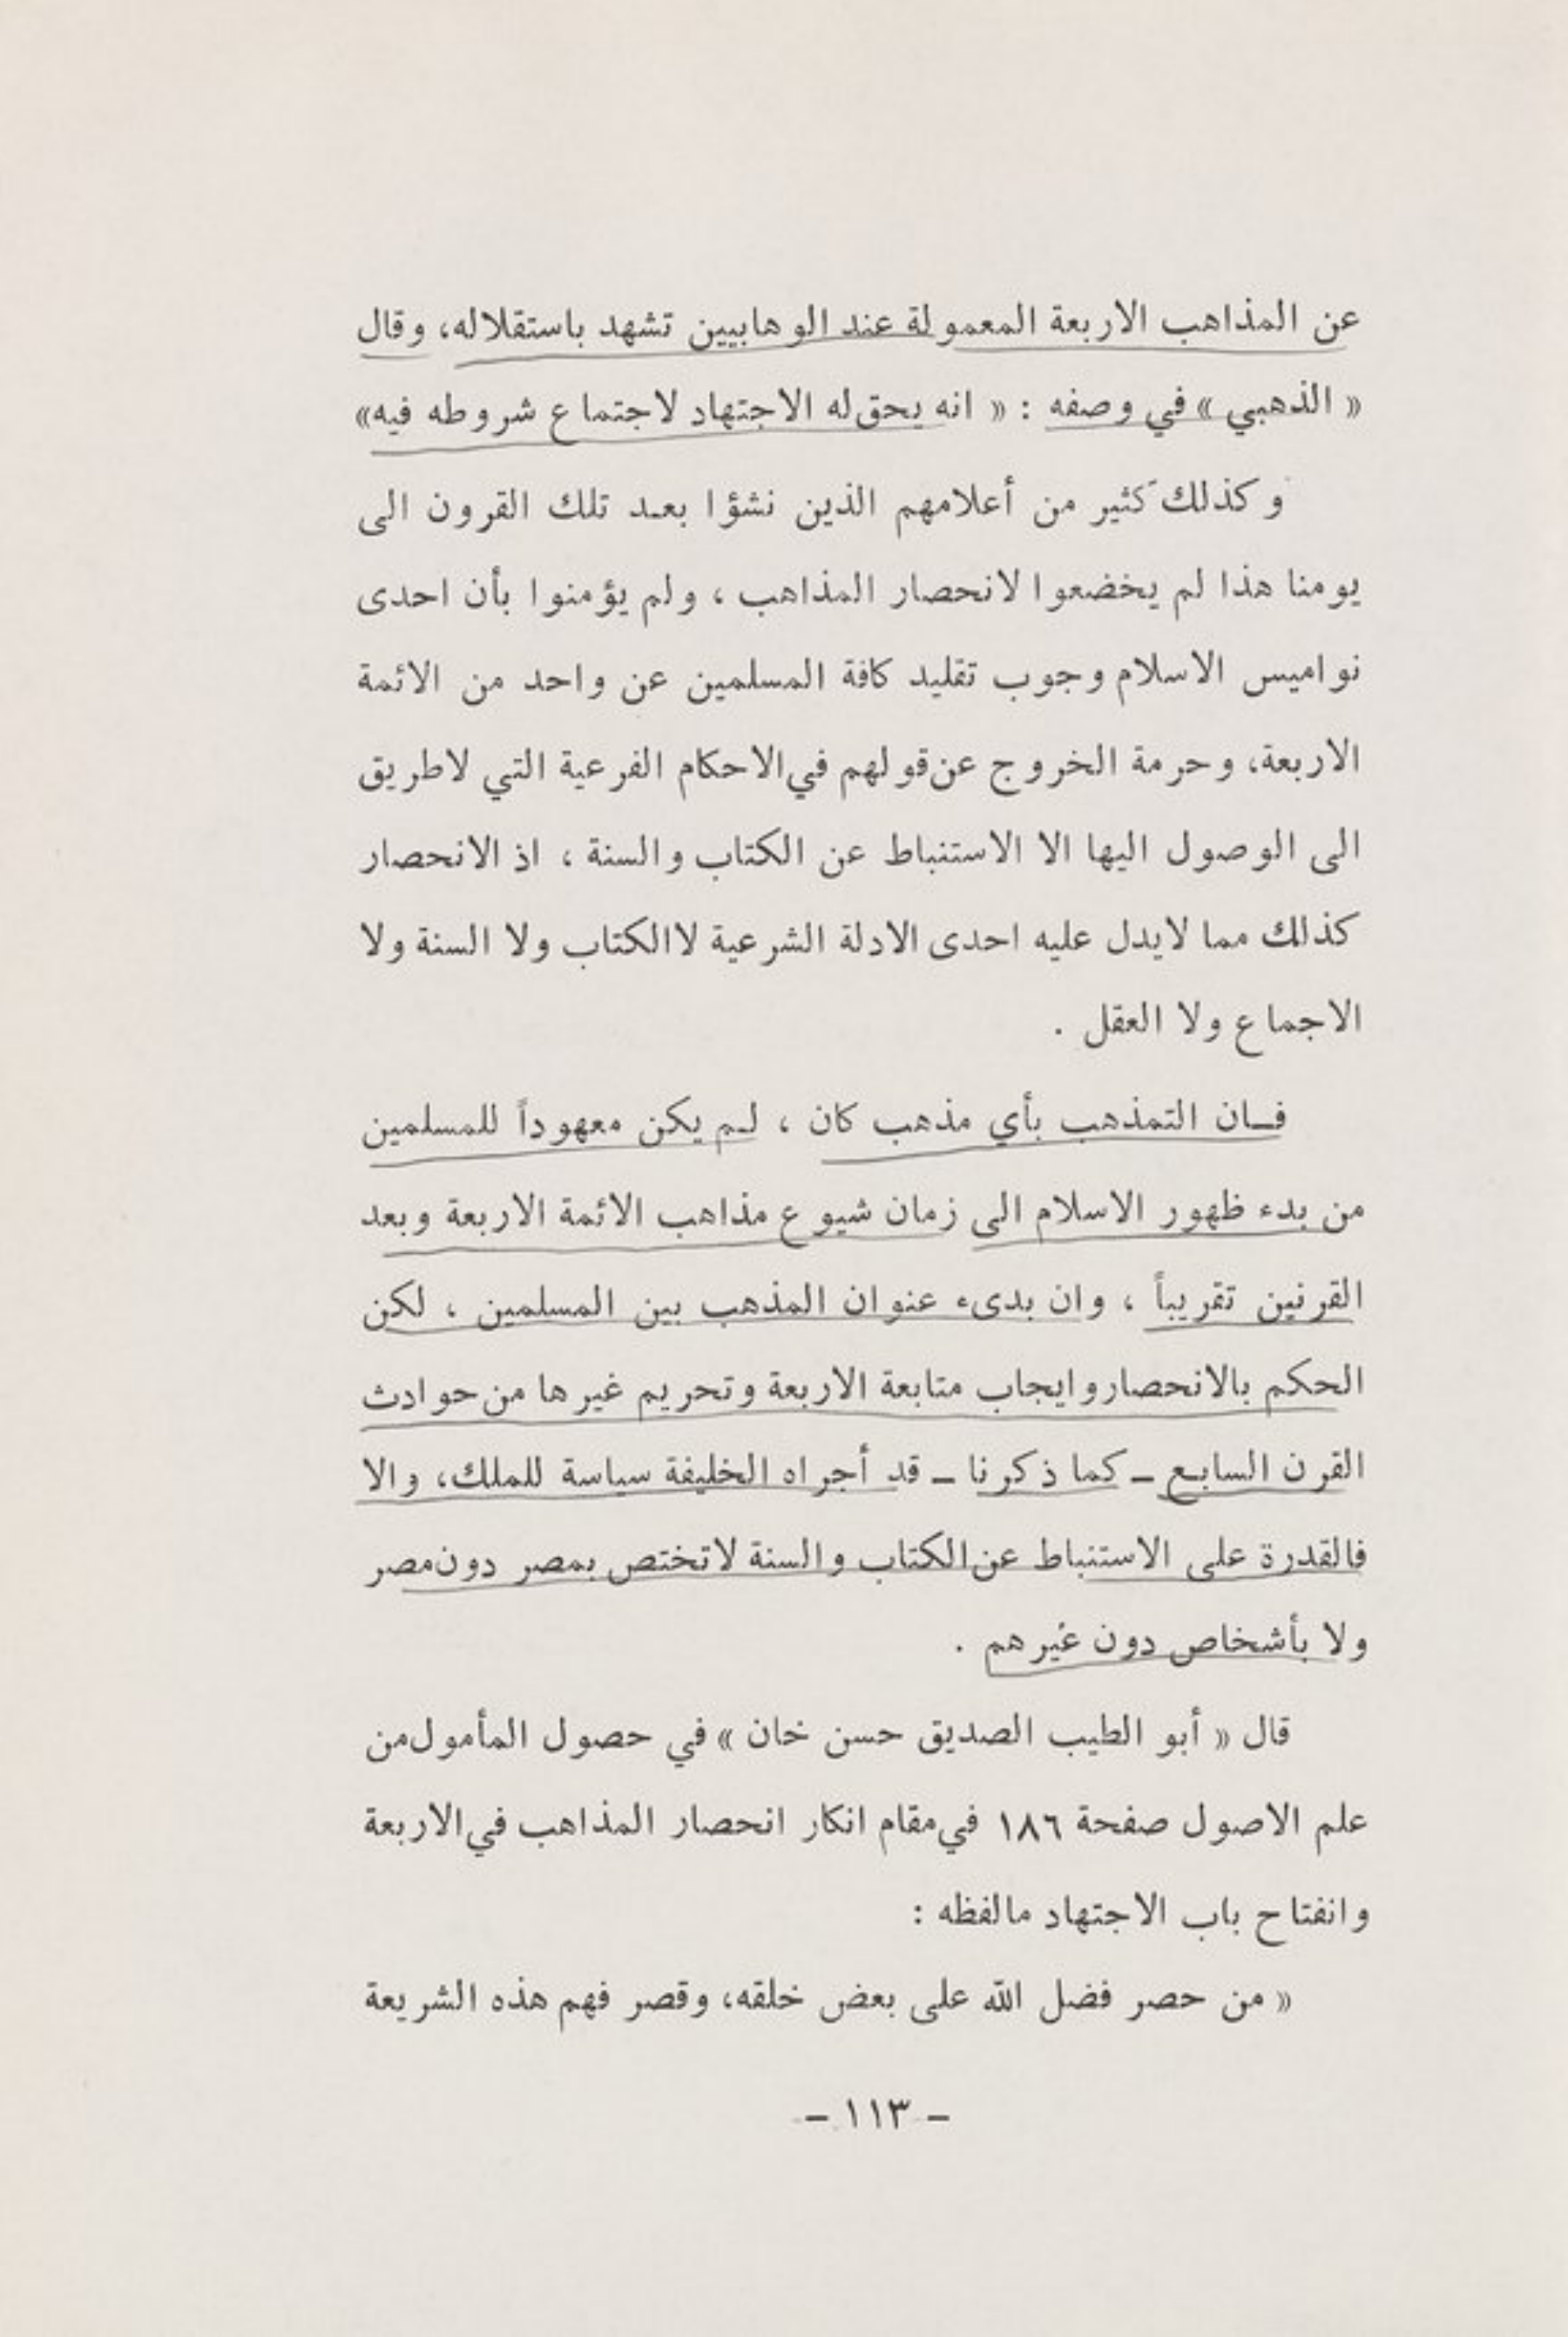 عن المذاهب الاربعة المعمولة عند الوهابيين تشهد باستقلاله، وقال
« الذهبي » في وصفه : « انه يحق له الاجتهاد لاجتماع شروطه فيه»
وكذلك كثير من أعلامهم الذين نشؤا بعد تلك القرون الى
يومنا هذا لم يخضعوا لانحصار المذاهب ، ولم يؤمنوا بأن احدى
نواميس الاسلام وجوب تقليد كافة المسلمين عن واحد من الائمة
الاربعة، وحرمة الخروج عن قولهم في الاحكام الفرعية التي لاطريق
الى الوصول اليها الا الاستنباط عن الكتاب والسنة ، اذ الانحصار
كذلك مما لايدل عليه احدى الادلة الشرعية لا الكتاب ولا السنة ولا
الاجماع ولا العقل .
فـان التمذهب بأي مذهب كان ، لـم يكن معهوداً للمسلمين
من بدء ظهور الاسلام الى زمان شيوع مذاهب الائمة الاربعة وبعد
القرنين تقريباً ، وان بدىء عنوان المذهب بين المسلمين ، لكن
الحكم بالانحصار وايجاب متابعة الاربعة وتحريم غيرها من حوادث
القرن السابع ـ كما ذكرنا ـ قد أجراه الخليفة سياسة للملك، والا
فالقدرة على الاستنباط عن الكتاب والسنة لاتختص بمصر دون مصر
ولا بأشخاص دون غيرهم .
قال « أبو الطيب الصديق حسن خان » في حصول المأمول من
علم الاصول صفحة ١٨٦ في مقام انكار انحصار المذاهب في الاربعة
وانفتاح باب الاجتهاد مالفظه :
« من حصر فضل الله على بعض خلقه، وقصر فهم هذه الشريعة
– ١١٣ –